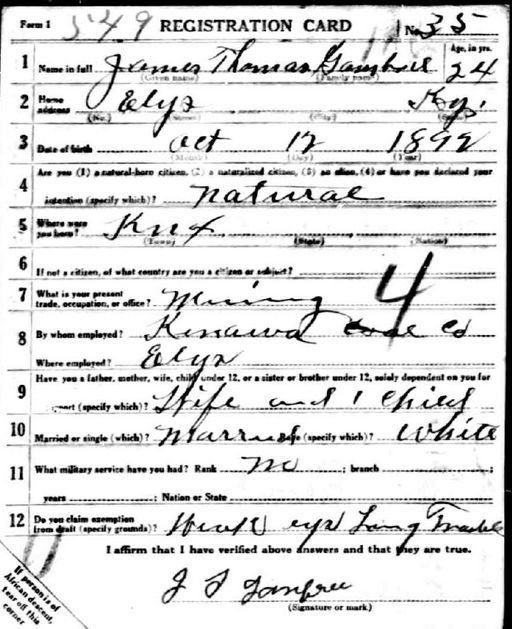 Form 1 549 REGISTRATION CARD No. 35
1 Name in full James Thomas Age, in yrs. 24
(Given name) (Family name)
2 Home address Elys Ky.
(No.) (Street) (City) (State)
3 Date of birth Oct 12 1892
(Month) (Day) (Year)
4 Are you (1) a natural-born citizen, (2) a naturalized citizen, (3) an alien, (4) or have you declared your
intention (specify which)? natural
5 Where were you born? Knx
(Town) (State) (Nation)
6 If not a citizen, of what country are you a citizen or subject?
7 What is your present trade, occupation, or office? Mining 4
8 By whom employed? Kenawa Coal Co
Where employed? Elys
9 Have you a father, mother, wife, child under 12, or a sister or brother under 12, solely dependent on you for
support (specify which)? Wife and 1 child
10 Married or single (which)? Married Race (specify which)? White
11 What military service have you had? Rank no ; branch ;
years ; Nation or State
12 Do you claim exemption from draft (specify grounds)? Lung
I affirm that I have verified above answers and that they are true.
J T
(Signature or mark)
If person is of
African descent,
tear off this
corner